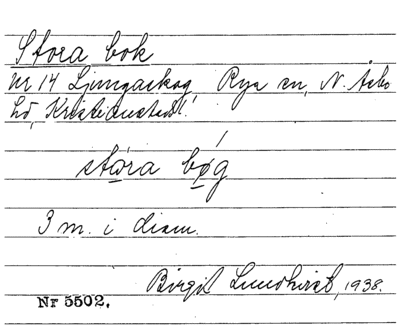 Stora bok
Nr 14 Ljungaskog, Rya sn, N. Åsbo
hd, Kristianstad l.
stora bøg
3 m. i diam.
Birgit Lundkvist, 1938.
Nr 5502.